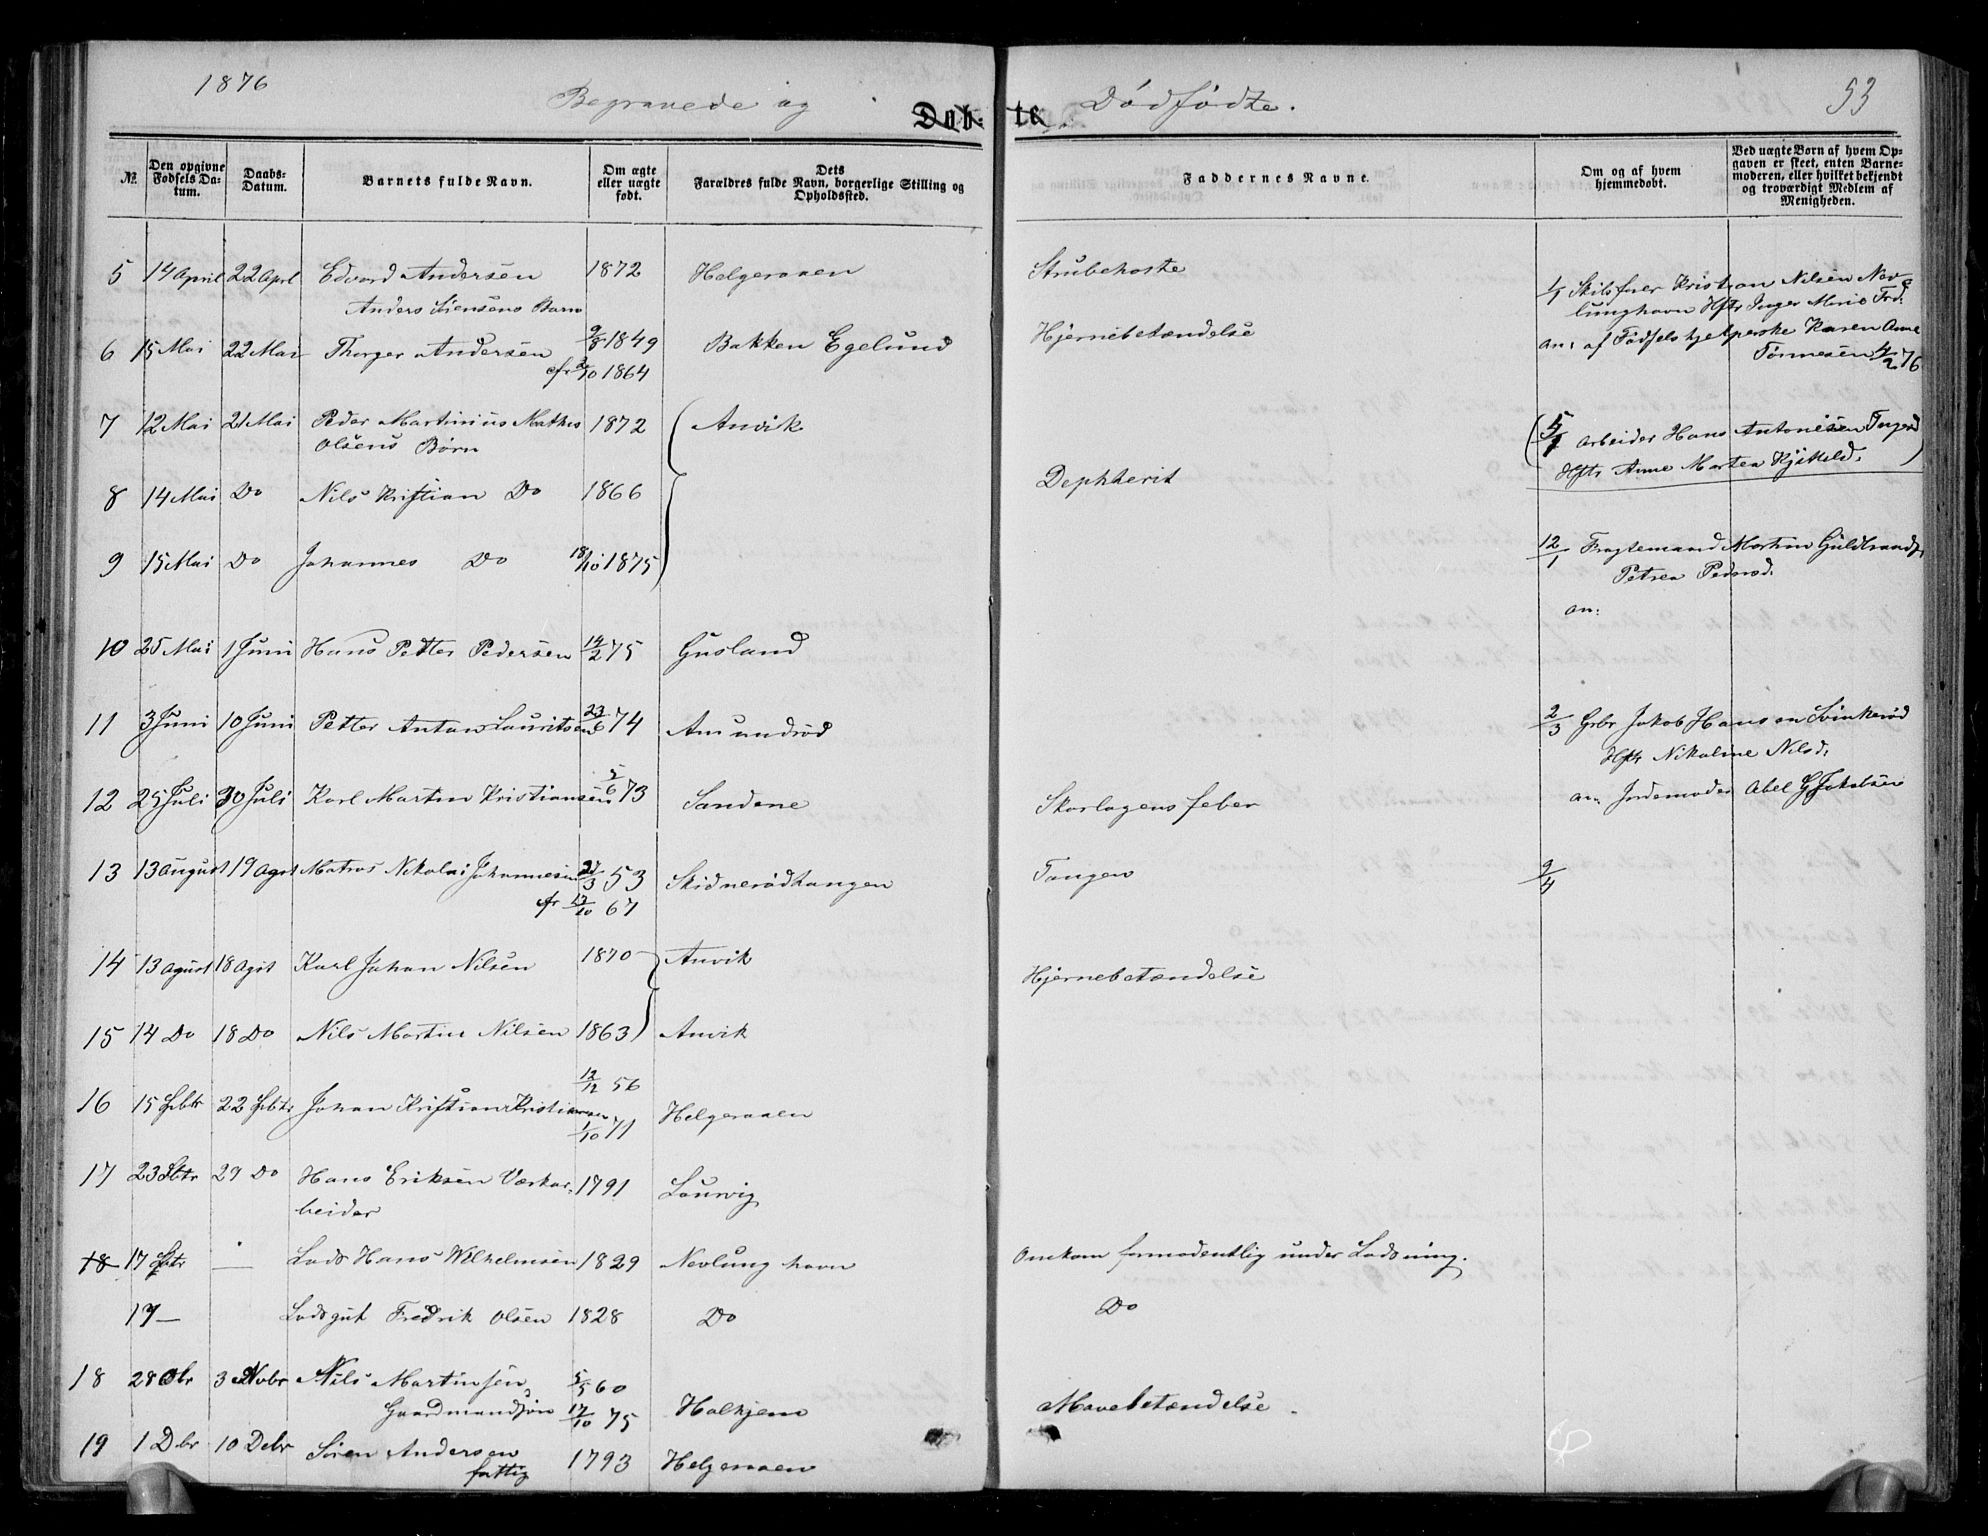 1876
Begravede og Dødfødte.
53
Døb-te
No.
Den opgivne Fødsels Datum.
Daabs-Datum.
Barnets fulde Navn.
Om ægte eller uægte født.
Dets Forældres fulde Navn, borgerlige Stilling og Opholdssted.
Faddernes Navne.
Om og af hvem hjemmedøbt.
Ved uægte Børn af hvem Opgaven er skeet, enten Barnemoderen, eller hvilket bekjendt og troværdigt Medlem af Menigheden.
5 14 April 22 Aprl Edvard Andersen 1872 Helgeraaen Strubehoste
Anders Børn
6 15 Mai 22 Mai Thorger Andersen 9/8 1849 Bakken Egelund Hjernebetændelse
cfr 2/10 1864
7 12 Mai 21 Mai Peder Martinius Mathis 1872 Anvik
Olsens Børn
8 14 Mai Do Nils Kristian Do 1866 Dephterit
9 15 Mai Do Johannes Do 18/10 1875
10 25 Mai 1 Juni Hans Petter Pedersen 14/2 75 Gusland
11 3 Juni 10 Juni Petter Anton Lauritsen 23/6 74 Amundrød
12 25 Juli 30 Juli Karl Martin Kristiansen 5/6 73 Sandene Skarlagensfeber
13 13 August 19 Agst Matros Nikolai Johannesen 27/3 53 Skidnerødtangen Tangen
cfr 17/10 67
14 13 Agust 18 Agst Karl Johan Nilsen 1870 Anvik Hjernebetændelse
15 14 Do 18 Do Nils Martin Nilsen 1863 Anvik
16 15 22 Johan Kristian Kristiansen 12/12 56 Helgeraaen
1/10 71
17 23 29 Do Hans Eriksen Værkar- 1791 Laurvig
beider
18 17 — Lods Hans Wilhelmsen 1829 Nevlunghavn Omkom formodentlig under Lodsning.
17 — Lodsgut Fredrik Olsen 1828 Do Do
18 28 Obr 3 Novbr Nils Martinsen 5/5 60
Gaardmandsøn 17/10 75 Halkjem Mavebetændelse.
19 1 Dbr 10 Debr Søren Andersen 1793 Helgeraaen
fattig
1/1 Kristian Nilsen Nev-
lunghavn Hstr Inger Marie
an: af Fødselshjelperske Karen Anne
4/2 76
5/1 Arbeider Hans Antonisen
Hstr Anne Martea
12/1 Fragtemand Martin
Petrea Pedersd.
an:
2/3 Grbr Jakob Hansen
Hstr Nikoline Nilsd.
an: Jordemoder Abel G Jakobsen
9/4